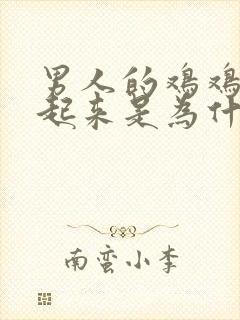 男人的鸡鸡
起来是为什
南蛮小李